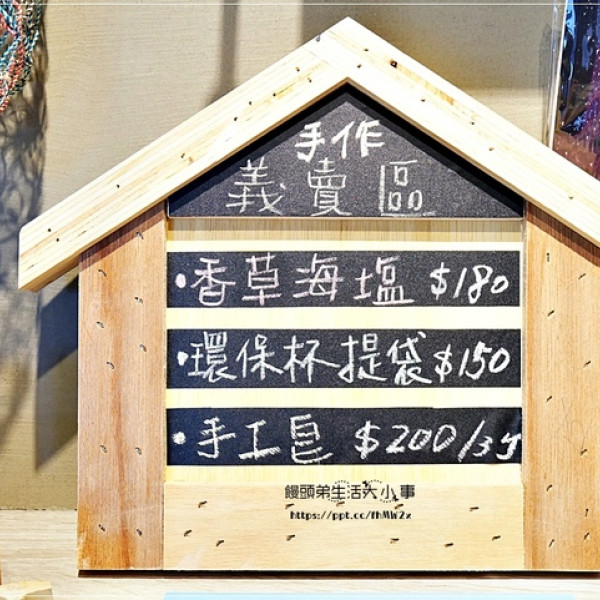 手作
義賣區
•香草海塩 $180
•環保杯提袋$150
•手工皂 $200/3
饅頭弟生活大小事
https://ppt.cc/fhMW2x